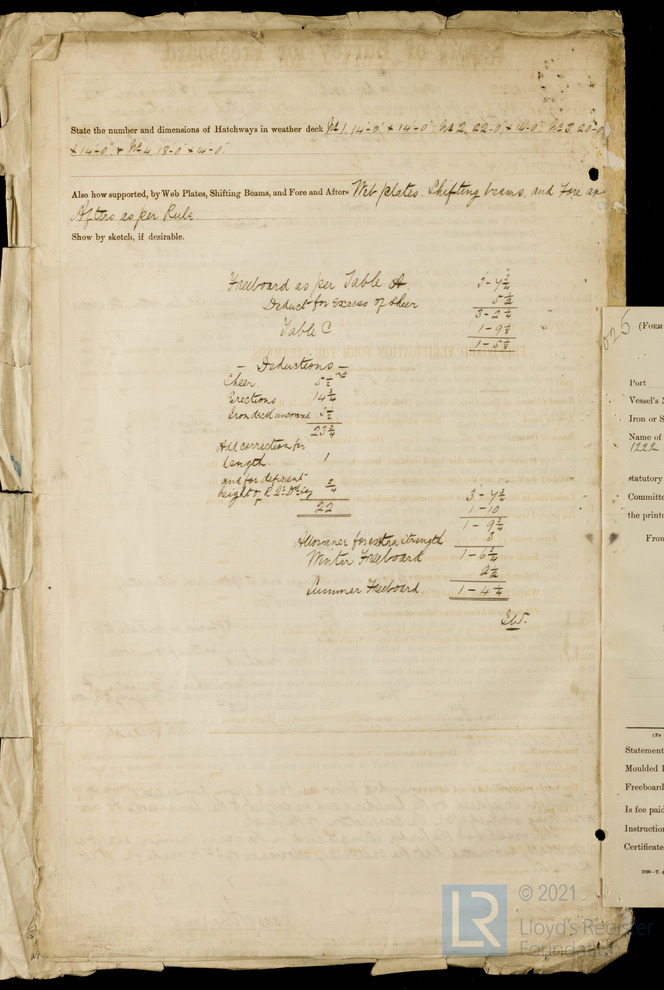 State the number and dimensions of Hatchways in weather deck No 1, 14'-0" x 14'-0" No 2, 22'-0" x 14'-0" No 3, 20'-0
x 14'-0" & No 4 18'-0" x 14'-0"
Also how supported, by Web Plates, Shifting Beams, and Fore and Afters Web plates, Shifting beams, and fore an
Afters as per Rule.
Show by sketch, if desirable.
Freeboard as per Table A. 3-7 3/4
Deduct for Excess of Sheer 5 1/2
3-2 1/4
Table C. 1-9
1-5
- Deductions -
Sheer 5 1/2
Erections 14 3/4
Iron deck uncovered 3 1/2
23 3/4
Add correction for
length 1
and for deficient
height of R. Qr. Dk 3/4
22
3-7 3/4
1-10
1-9 3/4
Allowance for extra strength 3
Winter Freeboard 1-6 3/4
2 1/2
Summer Freeboard. 1-4 1/4
(Form
Port
Vessel's
Iron or S
Name of
1222
statutory
Committe
the printe
From
Statement
Moulded
Freeboard
Is fee paid
Instruction
Certificate
LR
© 2021
Lloyd's Register
Foundation